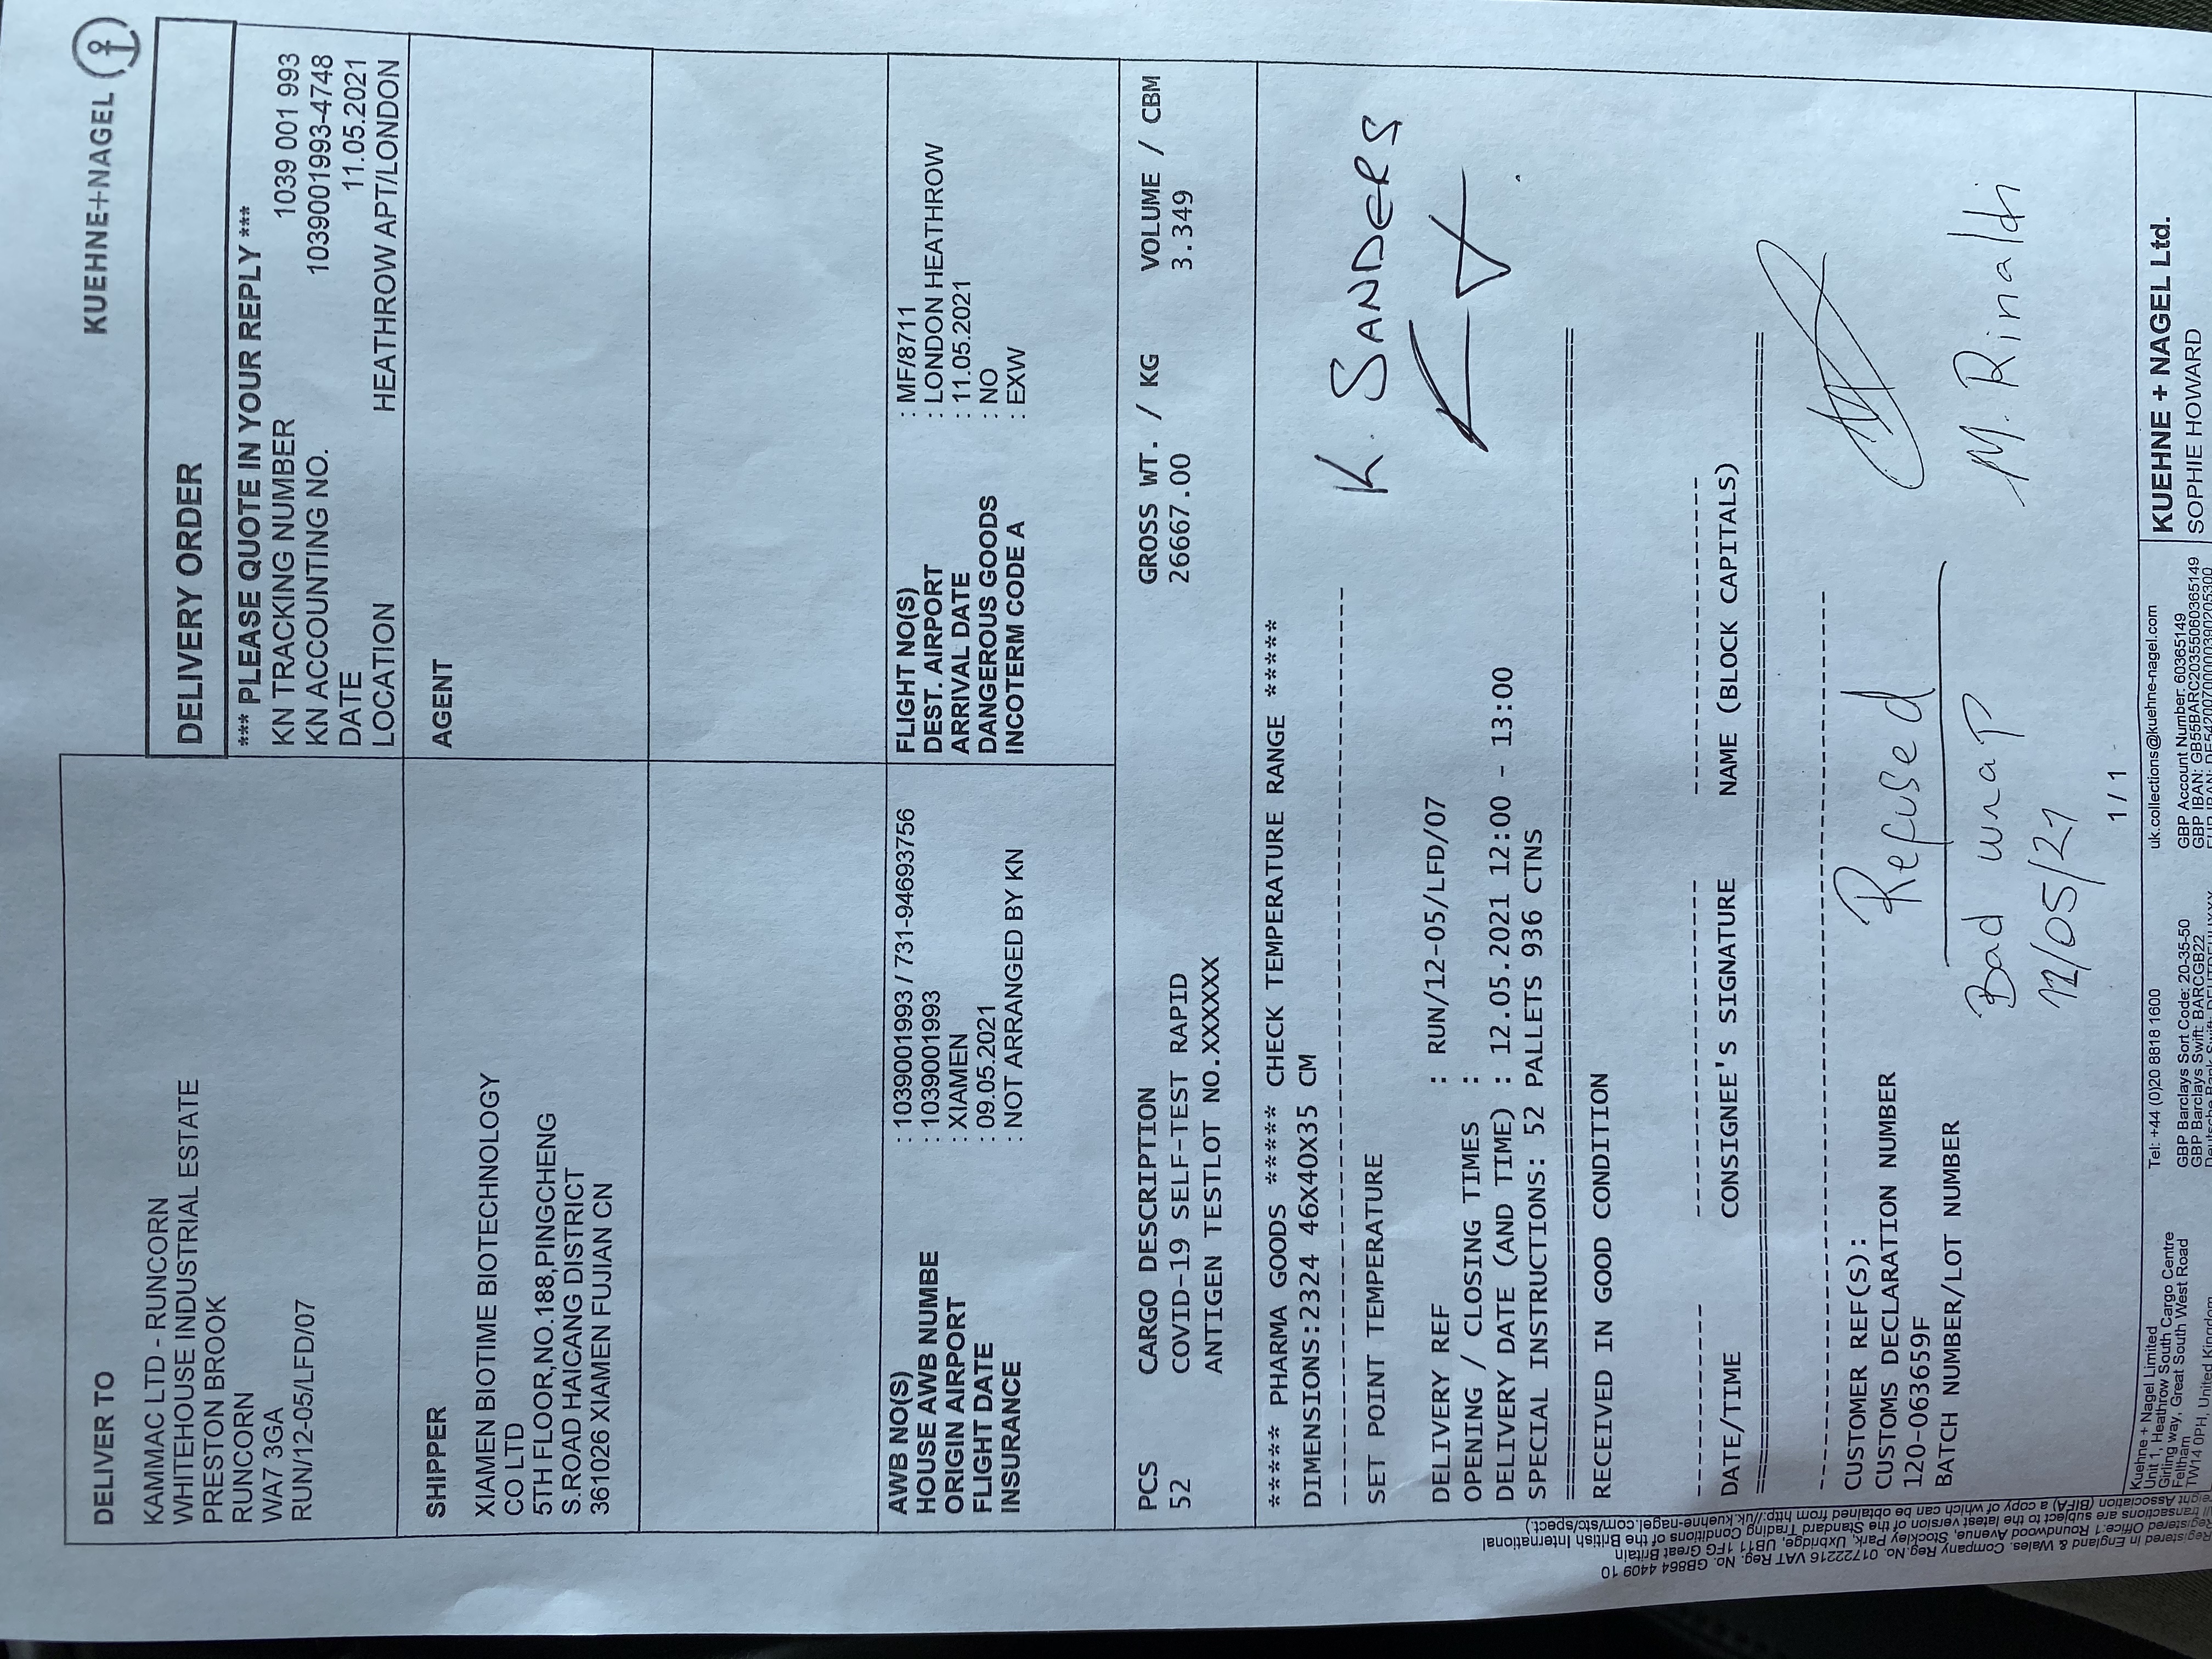 KUEHNE+NAGEL
DELIVER TO
KAMMAC LTD - RUNCORN
WHITEHOUSE INDUSTRIAL ESTATE
PRESTON BROOK
RUNCORN
WA7 3GA
RUN/12-05/LFD/07
DELIVERY ORDER
*** PLEASE QUOTE IN YOUR REPLY ***
KN TRACKING NUMBER 1039 001 993
KN ACCOUNTING NO. 1039001993-4748
DATE 11.05.2021
LOCATION HEATHROW APT/LONDON
SHIPPER
XIAMEN BIOTIME BIOTECHNOLOGY
CO LTD
5TH FLOOR,NO.188,PINGCHENG
S.ROAD HAICANG DISTRICT
361026 XIAMEN FUJIAN CN
AGENT
AWB NO(S) : 1039001993 / 731-94693756
HOUSE AWB NUMBE : 1039001993
ORIGIN AIRPORT : XIAMEN
FLIGHT DATE : 09.05.2021
INSURANCE : NOT ARRANGED BY KN
FLIGHT NO(S) : MF/8711
DEST. AIRPORT : LONDON HEATHROW
ARRIVAL DATE : 11.05.2021
DANGEROUS GOODS : NO
INCOTERM CODE A : EXW
PCS CARGO DESCRIPTION GROSS WT. / KG VOLUME / CBM
52 COVID-19 SELF-TEST RAPID 26667.00 3.349
ANTIGEN TESTLOT NO.XXXXXX
***** PHARMA GOODS ***** CHECK TEMPERATURE RANGE *****
DIMENSIONS:2324 46X40X35 CM
K. SANDERS
SET POINT TEMPERATURE
DELIVERY REF : RUN/12-05/LFD/07
OPENING / CLOSING TIMES :
DELIVERY DATE (AND TIME) : 12.05.2021 12:00 - 13:00
SPECIAL INSTRUCTIONS: 52 PALLETS 936 CTNS
RECEIVED IN GOOD CONDITION
DATE/TIME CONSIGNEE'S SIGNATURE NAME (BLOCK CAPITALS)
CUSTOMER REF(S):
CUSTOMS DECLARATION NUMBER
120-063659F
BATCH NUMBER/LOT NUMBER
Refused
Bad wrap
12/05/21
M. Rinaldi
1 / 1
Registered in England & Wales. Company Reg.No. 01722216 VAT Reg. No. GB864 4409 10
Registered Office:1 Roundwood Avenue, Stockley Park, Uxbridge, UB11 1FG Great Britain
All transactions are subject to the latest version of the Standard Trading Conditions of the British International
Freight Association (BIFA) a copy of which can be obtained from http://uk.kuehne-nagel.com/stc/spect.)
Kuehne + Nagel Limited
Unit 1, Heathrow South Cargo Centre
Girling way, Great South West Road
Feltham
TW14 0PH, United Kingdom
Tel: +44 (0)20 8818 1600
GBP Barclays Sort Code: 20-35-50
GBP Barclays Swift: BARCGB22
uk.collections@kuehne-nagel.com
GBP Account Number: 60365149
GBP IBAN: GB55BARC20355060365149
KUEHNE + NAGEL Ltd.
SOPHIE HOWARD